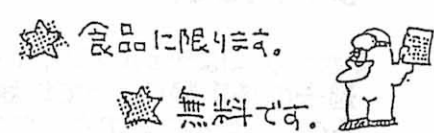 食品に限ります。
無料です。